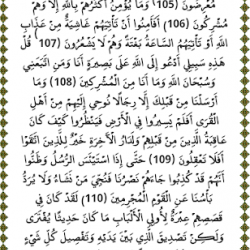 مُعْرِضُونَ (105) وَمَا يُؤْمِنُ أَكْثَرُهُمْ بِاللَّهِ إِلَّا وَهُمْ
مُشْرِكُونَ (106) أَفَأَمِنُوا أَنْ تَأْتِيَهُمْ غَاشِيَةٌ مِنْ عَذَابِ
اللَّهِ أَوْ تَأْتِيَهُمُ السَّاعَةُ بَغْتَةً وَهُمْ لَا يَشْعُرُونَ (107) قُلْ
هَذِهِ سَبِيلِي أَدْعُو إِلَى اللَّهِ عَلَى بَصِيرَةٍ أَنَا وَمَنِ اتَّبَعَنِي
وَسُبْحَانَ اللَّهِ وَمَا أَنَا مِنَ الْمُشْرِكِينَ (108) وَمَا
أَرْسَلْنَا مِنْ قَبْلِكَ إِلَّا رِجَالًا نُوحِي إِلَيْهِمْ مِنْ أَهْلِ
الْقُرَى أَفَلَمْ يَسِيرُوا فِي الْأَرْضِ فَيَنْظُرُوا كَيْفَ كَانَ
عَاقِبَةُ الَّذِينَ مِنْ قَبْلِهِمْ وَلَدَارُ الْآخِرَةِ خَيْرٌ لِلَّذِينَ اتَّقَوْا
أَفَلَا تَعْقِلُونَ (109) حَتَّى إِذَا اسْتَيْئَسَ الرُّسُلُ وَظَنُّوا
أَنَّهُمْ قَدْ كُذِبُوا جَاءَهُمْ نَصْرُنَا فَنُجِّيَ مَنْ نَشَاءُ وَلَا يُرَدُّ
بَأْسُنَا عَنِ الْقَوْمِ الْمُجْرِمِينَ (110) لَقَدْ كَانَ فِي
قَصَصِهِمْ عِبْرَةٌ لِأُولِي الْأَلْبَابِ مَا كَانَ حَدِيثًا يُفْتَرَى
وَلَكِنْ تَصْدِيقَ الَّذِي بَيْنَ يَدَيْهِ وَتَفْصِيلَ كُلِّ شَيْءٍ